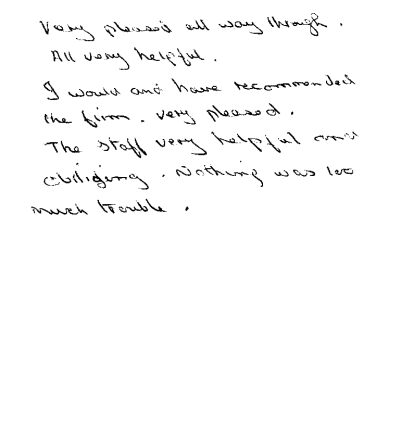 Very pleased all way through.
All very helpful.
I would and have recommended
the firm. very pleased.
The staff very helpful and
obliging. Nothing was too
much trouble.